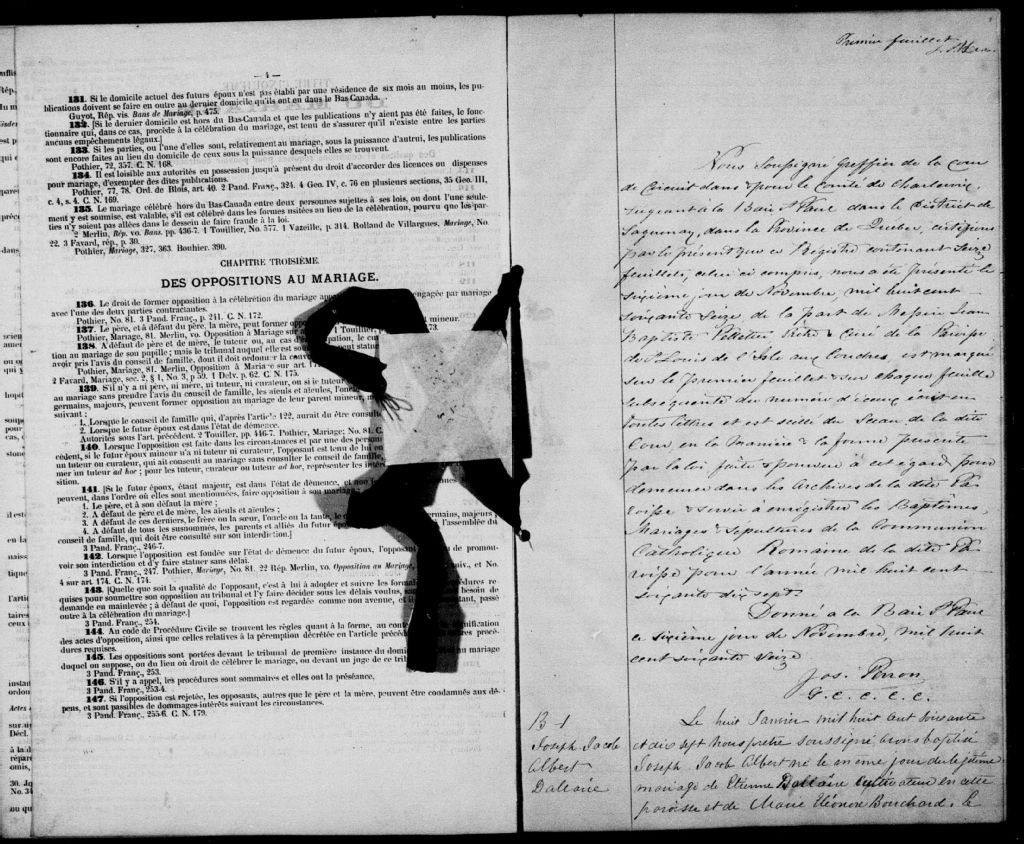 — 4 —
131. Si le domicile actuel des futurs époux n'est pas établi par une résidence de six mois au moins, les pu-
blications doivent se faire en outre au dernier domicile qu'ils ont eu dans le Bas-Canada.
Guyot, Rép. vis. Bans de Mariage, p. 475.
132. [Si le dernier domicile est hors du Bas-Canada et que les publications n'y aient pas été faites, le fonc-
tionnaire qui, dans ce cas, procède à la célébration du mariage, est tenu de s'assurer qu'il n'existe entre les parties
aucuns empêchements légaux.]
133. Si les parties, ou l'une d'elles sont, relativement au mariage, sous la puissance d'autrui, les publications
sont encore faites au lieu du domicile de ceux sous la puissance desquels elles se trouvent.
Pothier, 72, 357. C. N. 168.
134. Il est loisible aux autorités en possession jusqu'à présent du droit d'accorder des licences ou dispenses
pour mariage, d'exempter des dites publications.
Pothier, 77, 78. Ord. de Blois, art. 40. 2 Pand. Franç., 324. 4 Geo. IV, c. 76 en plusieurs sections, 35 Geo. III,
c. 4, s. 4. C. N. 169.
135. Le mariage célébré hors du Bas-Canada entre deux personnes sujettes à ses lois, ou dont l'une seule-
ment y est soumise, est valable, s'il est célébré dans les formes usitées au lieu de la célébration, pourvu que les par-
ties n'y soient pas allées dans le dessein de faire fraude à la loi.
2 Merlin, Rép. vo. Bans, pp. 436-7. 1 Toullier, No. 577. 1 Vazeille, p. 314. Rolland de Villargues, Mariage, No.
22. 3 Favard, rép., p. 30.
Pothier, Mariage, 327, 363. Bouhier. 390.
CHAPITRE TROISIÈME.
DES OPPOSITIONS AU MARIAGE.
136. Le droit de former opposition à la célébration du mariage engagée par mariage
avec l'une des deux parties contractantes.
Pothier, No. 81. 3 Pand. Franç., p. 241. C. N. 172.
137. Le père, et à défaut du père, la mère, peut former mineur.
Pothier, Mariage, 81. Merlin, vo. Opposition à Mariage sur 1 Touillier, 73.
138. A défaut de père et de mère, le tuteur ou, au cas
tion au mariage de son pupille; mais le tribunal auquel elle est statuer
avoir pris l'avis du conseil de famille, dont il doit ordonner la
Pothier, Mariage, 81. Merlin, Opposition à Mariage sur art.
2 Favard, Mariage, sec. 2, § 1, No. 3, p 59. 1 Delv. p. 62. C. N. 175.
139. S'il n'y a ni père, ni mère, ni tuteur, ni curateur, ou si le tuteur
au mariage sans prendre l'avis du conseil de famille, les aïeuls et aïeules,
germains, majeurs, peuvent former opposition au mariage de leur parent mineur,
suivant :
1. Lorsque le conseil de famille qui, d'après l'article 122, aurait du être
2. Lorsque le futur époux est dans l'état de démence.
Autorités sous l'art. précédent. 2 Touiller. pp. 446-7. Pothier, Mariage; No. 81. C.
140. Lorsque l'opposition est faite dans les circonstances et par une des
cédent, si le futur époux mineur n'a ni tuteur ni curateur, l'opposant est tenu de lui
un tuteur ou curateur, qui ait consenti au mariage sans consulter le conseil de famille,
mer un tuteur ad hoc; pour les tuteur, curateur ou tuteur ad hoc, représenter les
sition.
141. [Si le futur époux, étant majeur, est dans l'état de démence, et non
peuvent, dans l'ordre où elles sont mentionnées, faire opposition à son mariage;
1. Le père, et à son défaut la mère ;
2. A défaut de père et de mère, les aïeuls et aïeules ;
3. A défaut de ces derniers, le frère ou la sœur, l'oncle ou la tante, le germains, majeurs ;
4. A défaut de tous les susnommés, les parents et alliés du futur l'assemblée du
conseil de famille, qui doit être consulté sur son interdiction.]
3 Pand. Franç., 246-7.
142. Lorsque l'opposition est fondée sur l'état de démence du futur époux, de promou-
voir son interdiction et d'y faire statuer sans délai.
3 Pand. Franç., 247. Pothier, Mariage, No. 81. 22 Rép. Merlin, vo. Opposition au Mariage, et No.
4 sur art. 174. C. N. 174.
143. [Quelle que soit la qualité de l'opposant, c'est à lui à adopter et suivre les re-
quises pour soumettre son opposition au tribunal et l'y faire décider sous les délais voulus, besoin de
demande en mainlevée ; à défaut de quoi, l'opposition est regardée comme non avenue, et passé
outre à la célébration du mariage.]
3 Pand. Franç., 254.
144. Au code de Procédure Civile se trouvent les règles quant à la forme, au
des actes d'opposition, ainsi que celles relatives à la péremption décrétée en l'article procé-
dures requises.
145. Les oppositions sont portées devant le tribunal de première instance du mariage
duquel on suppose, ou du lieu où doit se célébrer le mariage, ou devant un juge de ce
3 Pand. Franç., 253.
146. S'il y a appel, les procédures sont sommaires et elles ont la préséance.
3 Pand. Franç., 253-4.
147. Si l'opposition est rejetée, les opposants, autres que le père et la mère, peuvent être condamnés aux dé-
pens, et sont passibles de dommages-intérêts suivant les circonstances.
3 Pand. Franç., 255-6. C. N. 179.
Premier feuillet
Nous Soussigné Greffier de la cour
de Circuit dans & pour le Comté de Charlevoix,
siégeant à la Baie St Paul dans le District de
Saguenay, dans la Province de Quebec, certifions
par le présent que ce Registre contenant Seize
feuillets, celui ci compris, nous a été présenté le
Sixième jour de Novembre, mil huit cent
soixante Seize de la part de Messire Jean
Baptiste Pelletier Prêtre & Curé de la Paroisse
de St Louis de l'Isle aux Coudres, est marqué
sur le premier feuillet & sur chaque feuillet
subséquent du numéro d'iceux écrit en
toutes lettres et est scellé du Sceau de la dite
Cour en la manière & la forme prescrite
par la loi faite & pourvue à cet égard pour
demeurer dans les Archives de la dite Pa-
roisse & servir à enregistrer les Baptêmes,
Mariages & Sépultures de la Communion
Catholique Romaine de la dite Pa-
roisse pour l'année mil huit cent
soixante dix sept.
Donné à la Baie St Paul
ce sixième jour de Novembre, mil huit
cent soixante seize
Jos. Perron
G. C. C. C. C.
B-1
Joseph Jacob
Albert
Dallaire
Le huit Janvier mil huit cent soixante
et dix sept nous prêtre soussigné avons baptisé
Joseph Jacob Albert né le même jour du légitime
mariage de Etienne Dallaire cultivateur en cette
paroisse et de Marie Eléonore Bouchard. Le